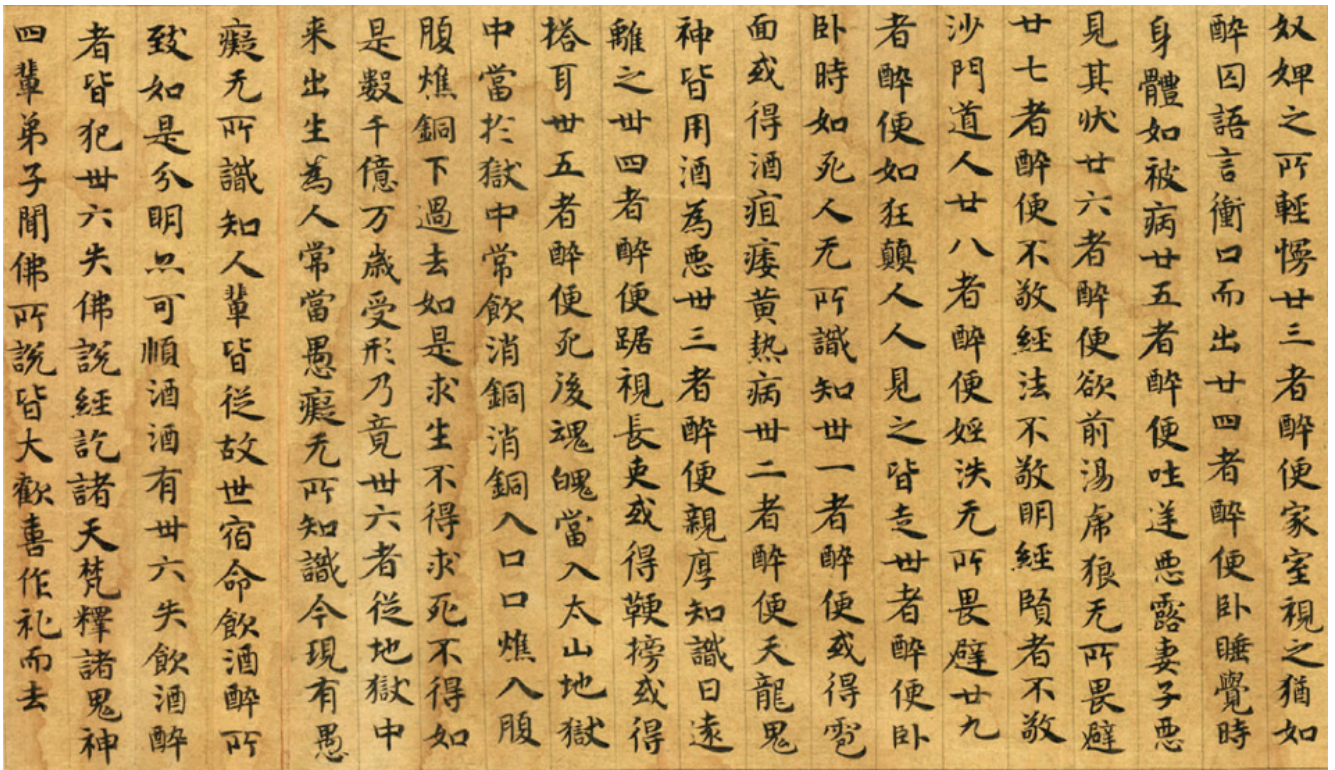 奴婢之所輕㥄廿三者醉便家室視之猶如
醉囚語言衝口而出廿四者醉便卧睡覺時
身體如被病廿五者醉便吐逆惡露妻子惡
見其状廿六者醉便欲前湯虎狼无所畏避
廿七者醉便不敬經法不敬明經賢者不敬
沙門道人廿八者醉便婬泆无所畏避廿九
者醉便如狂顛人人見之皆走丗者醉便卧
卧時如死人无所識知丗一者醉便或得皰
面或得酒疽痿黄热病丗二者醉便天龍鬼
神皆用酒為惡丗三者醉便親厚知識日遠
離之丗四者醉便踞視長吏或得鞕搒或得
榙耳丗五者醉便死後魂魄當入太山地獄
中當扵獄中常飲消銅消銅入口口燋入腹
腹燋銅下過去如是求生不得求死不得如
是數千億万歲受形乃竟丗六者從地獄中
来出生為人常當愚癡无所知識今現有愚
癡无所識知人輩皆從故世宿命飲酒醉所
致如是分明亦可順酒酒有丗六失飲酒醉
者皆犯丗六失佛説經訖諸天梵釋諸鬼神
四輩弟子聞佛所説皆大歡喜作礼而去